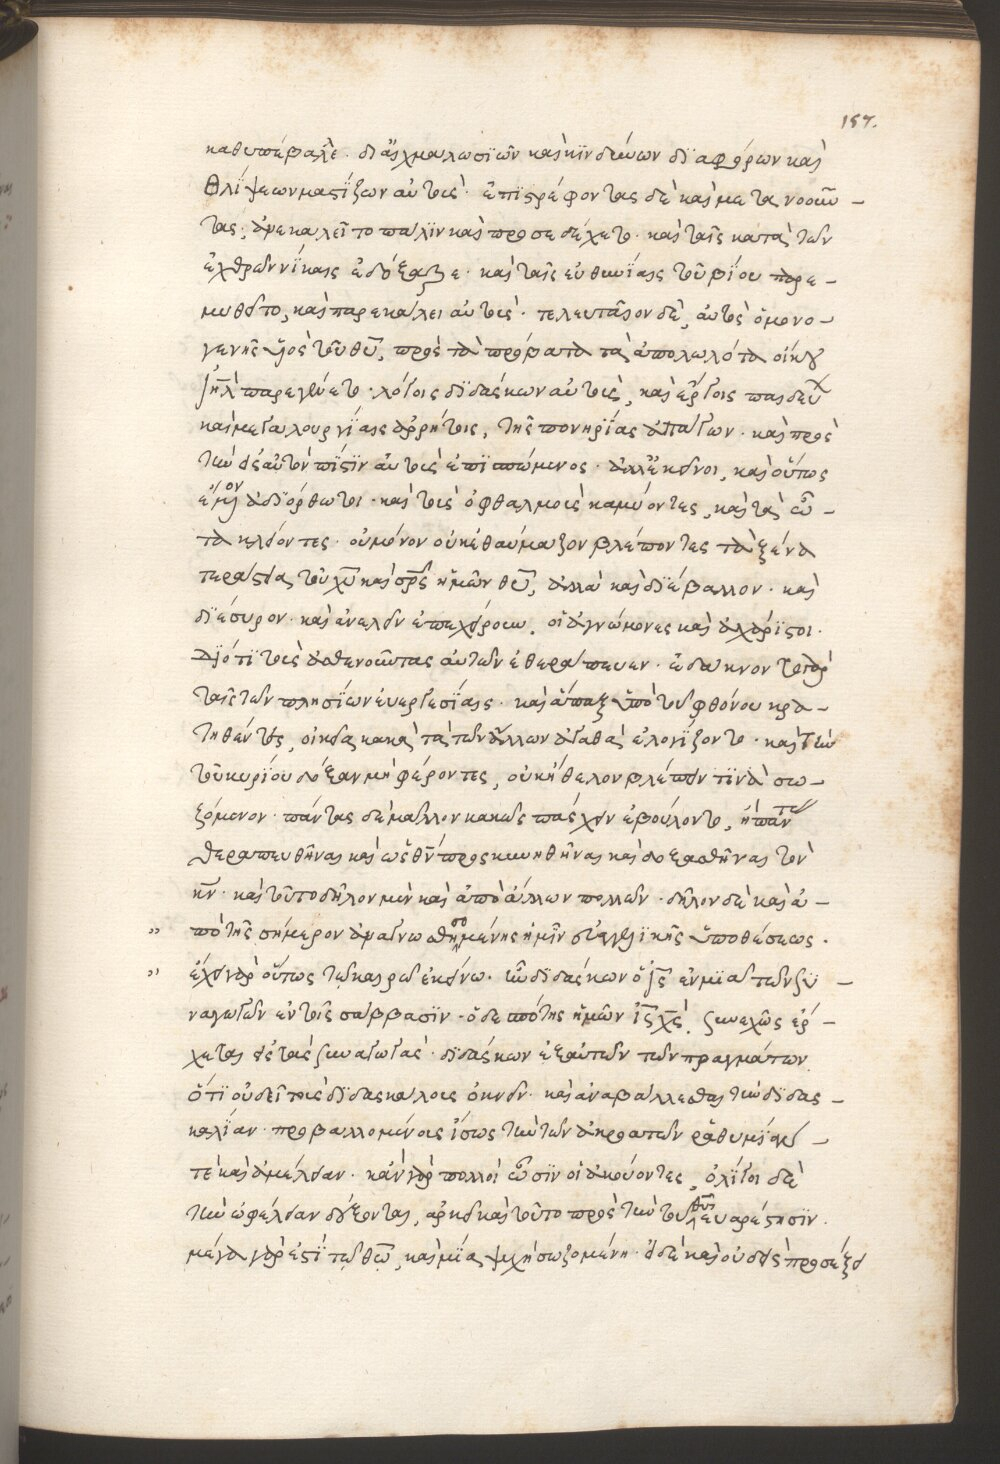 157.
καθυπέβαλλε. δι' αἰχμαλωσιῶν καὶ κινδύνων διαφόρων καὶ
θλίψεων μαστίζων αὐτούς. ἐπιστρέφοντας δὲ καὶ μετανοοῦν-
τας, ἀνεκαλεῖτο πάλιν καὶ προσεδέχετο. καὶ ταῖς κατὰ τῶν
ἐχθρῶν νίκαις ἐδόξαζε. καὶ ταῖς εὐθυνίαις τοῦ βίου παρε-
μυθεῖτο, καὶ παρεκάλει αὐτούς. τελευταῖον δὲ, αὐτὸς ὁ μονο-
γενὴς υἱὸς τοῦ θῦ, πρὸς τὰ πρόβατα τὰ ἀπολωλότα οἴκου
ἰηλ παρεγένετο. λόγοις διδάσκων αὐτοὺς, καὶ ἔργοις παιδεύων
καὶ μεγαλουργίαις ἀρρήτοις, τῆς πονηρίας ἀπάγων. καὶ πρὸς
τὴν εἰς αὐτὸν πίστιν αὐτοὺς ἐπισπώμενος. ἀλλ' ἐκεῖνοι, καὶ οὕτως
ἔμενον ἀδιόρθωτοι. καὶ τοὺς ὀφθαλμοὺς καμύοντες, καὶ τὰ ὦ-
τα κλείοντες. οὐ μόνον οὐκ ἐθαύμαζον βλέποντες τὰ ξένα
τεράστια τοῦ χῦ καὶ σρς ἡμῶν θῦ, ἀλλὰ καὶ διέβαλλον. καὶ
διέσυρον. καὶ ἀνελεῖν ἐπεχείρουν. οἱ ἀγνώμονες καὶ ἀχάριστοι.
διότι τοὺς ἀσθενοῦντας αὐτῶν ἐθεράπευεν. ἐδάκνοντο γὰρ
ταῖς τῶν πλησίων εὐεργεσίαις. καὶ ἅπαξ ὑπὸ τοῦ φθόνου κρα-
τηθέντες, οἰκεῖα κακὰ τὰ τῶν ἄλλων ἀγαθὰ ἐλογίζοντο. καὶ τὴν
τοῦ κυρίου δόξαν μὴ φέροντες, οὐκ ἤθελον βλέπειν τινὰ σω-
ζόμενον. πάντας δὲ μᾶλλον κακῶς πάσχειν ἐβούλοντο, ἢ πάντων
θεραπευθῆναι καὶ ὡς θν προσκυνηθῆναι καὶ δοξασθῆναι τὸν
κν. καὶ τοῦτο δῆλον μὲν καὶ ἀπὸ ἄλλων πολλῶν. δῆλον δὲ καὶ ἀ-
πὸ τῆς σήμερον ἀναγνωσθησομένης ἡμῖν εὐαγγελικῆς ὑποθέσεως.
ἔχει γὰρ οὕτως τῷ καιρῷ ἐκείνῳ. ἦν διδάσκων ὁ ις ἐν μιᾷ τῶν συ-
ναγωγῶν ἐν τοῖς σάββασιν. ὁ δεσπότης ἡμῶν ις χς, συνεχῶς ἔρ-
χεται εἰς τὰς συναγωγάς. διδάσκων ἐξ αὐτῶν τῶν πραγμάτων,
ὅτι οὐ δεῖ τοὺς διδασκάλους ὀκνεῖν. καὶ ἀναβάλλεσθαι τὴν διδασ-
καλίαν. προβαλλομένους ἴσως τὴν τῶν ἀκροατῶν ῥαθυμίαν
τὲ καὶ ἀμέλειαν. κἂν γὰρ πολλοὶ ὦσιν οἱ ἀκούοντες, ὀλίγοι δὲ
τὴν ὠφέλειαν δέξονται, ἀρκεῖ καὶ τοῦτο πρὸς τὴν τοῦ θῦ εὐαρέστησιν.
μέγα γὰρ ἐστὶ τῷ θῷ, καὶ μία ψυχὴ σωζομένη. εἰ δὲ καὶ οὐδεὶς προσέξει